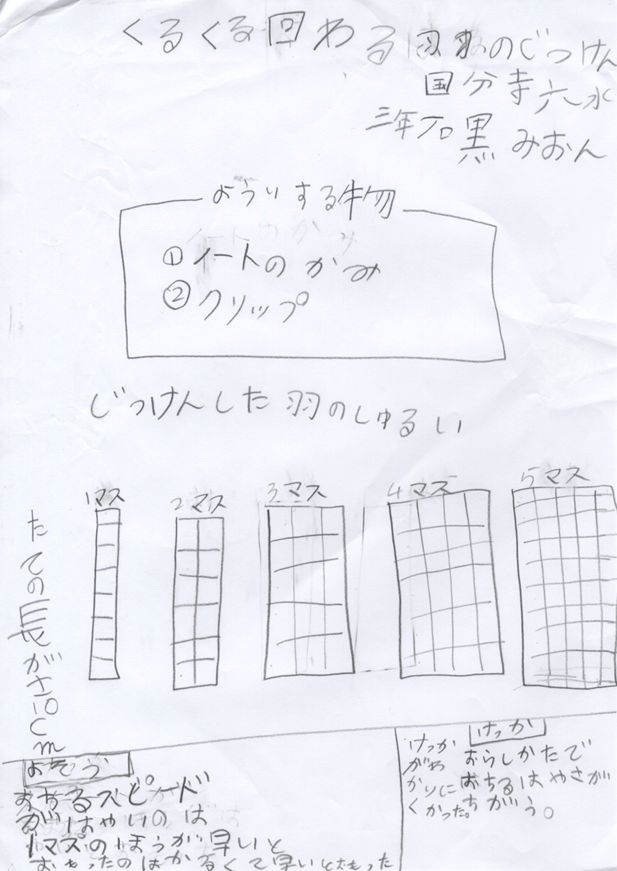 くるくる回わる羽根のじっけん
国分寺六水
三年石黒みおん
よういする物
①ノートのかみ
②クリップ
じっけんした羽のしゅるい
1マス
2マス
3マス
4マス
5マス
たての長がさ10cm
よそう
スピード
がはやいのは
1マスのほうが早いと
おもったのはかるくて早いと
けっか
おらしかたで
おちるはやさが
ちがう。
けっか
がわ
かりに
くかった。